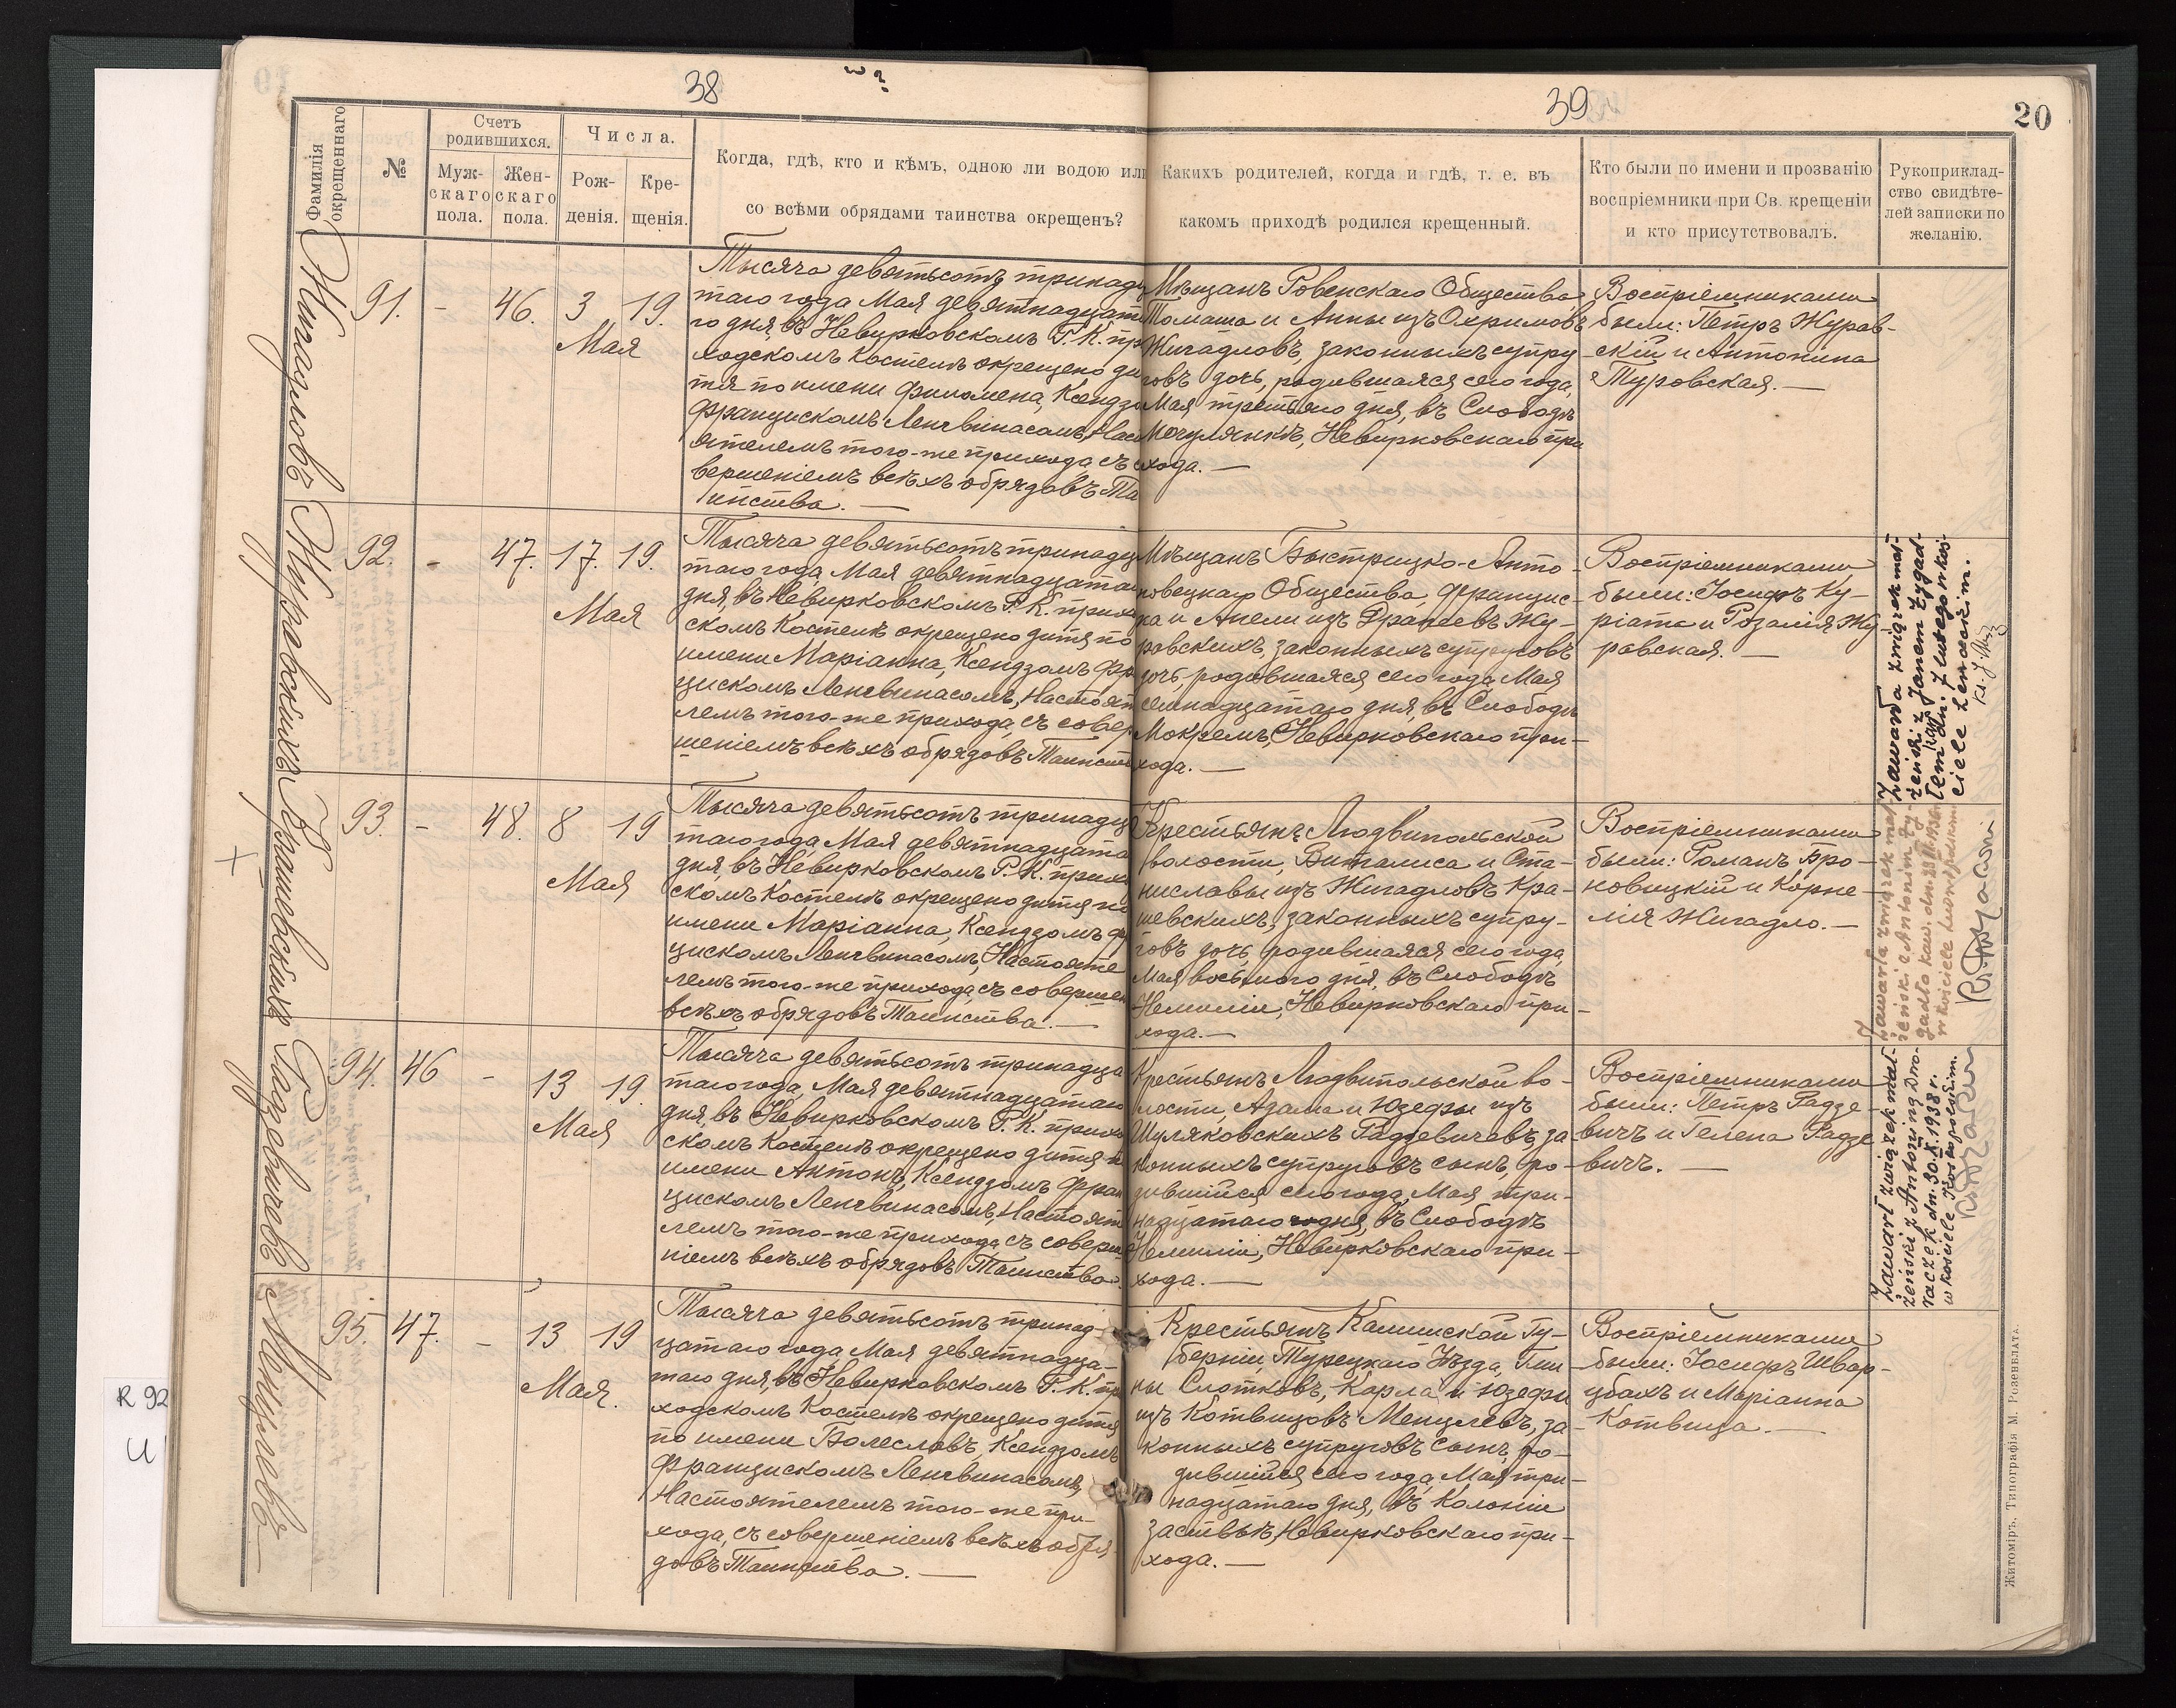 38
39
20
Фамилія
окрещеннаго
№
Счетъ
родившихся.
Муж-
скаго
пола.
Жен-
скаго
пола.
Числа.
Рож-
денія.
Кре-
щенія.
Когда, гдѣ, кто и кѣмъ, одною ли водою или
со всѣми обрядами таинства окрещенъ?
Какихъ родителей, когда и гдѣ, т. е. въ
какомъ приходѣ родился крещенный.
Кто были по имени и прозванію
воспріемники при Св. крещеніи
и кто присутствовалъ.
Рукоприклад-
ство свидѣте-
лей записки по
желанію.
Жигадловъ
91. - 46. 3 19.
Мая
Тысяча девятьсотъ тринадц
таго года Мая девятнадцата
го дня, въ Невирковскомъ Р. К. пр
ходскомъ Костелѣ окрещено ди
тя по имени Филомена, Ксендзо
Францискомъ Ленгвинасомъ, Наст
ятелемъ того-же прихода, съ со
вершеніемъ всѣхъ обрядовъ Та
инства. —
Мѣщанъ Ровенскаго Общества
Томаша и Анны изъ Охримовъ
Жигадловъ, законныхъ супру
говъ дочь, родившаяся сего года,
Мая третьяго дня, въ Слободѣ
Мочулянкѣ, Невирковскаго при
хода. —
Воспріемниками
были: Петръ Журав-
скій и Антонина
Туровская. —
Журавскихъ
92. - 47. 17. 19.
Мая
Тысяча девятьсотъ тринадц
таго года, Мая девятнадцатаго
дня, въ Невирковскомъ Р. К. приход
скомъ Костелѣ окрещено дитя по
имени Маріанна, Ксендзомъ Фра
цискомъ Ленгвинасомъ, Настоят
лемъ того-же прихода, съ совер
шеніемъ всѣхъ обрядовъ Таинств
Мѣщанъ Быстрицко-Анто-
новецкаго Общества, Францис-
ка и Анели изъ Жу-
равскихъ, законныхъ супруговъ
дочь, родившаяся сего года Мая
семнадцатаго дня, въ Слободѣ
Мокремъ, Невирковскаго при-
хода. —
Воспріемниками
были: Іосифъ Ку-
ріата и Розалія Жу-
равская. —
Zawarła związek mał-
żeński z Janem Żygad-
łem dn. 7 lutego w koś-
ciele Lenaczin.
Крашевскихъ
93. - 48. 8 19
Мая
Тысяча девятьсотъ тринадца
таго года Мая девятнадцата
дня, въ Невирковскомъ Р. К. прихо
скомъ Костелѣ окрещено дитя по
имени Маріанна, Ксендзомъ Фр
цискомъ Ленгвинасомъ, Настояте
лемъ того-же прихода, съ совершен
всѣхъ обрядовъ Таинства. —
Крестьянъ Людвипольской
волости, Виталиса и Ста-
ниславы изъ Жигадловъ Кра-
шевскихъ, законныхъ супру-
говъ дочь, родившаяся сего года,
Мая восьмого дня, въ Слободѣ
Немиліи, Невирковскаго при-
хода. —
Воспріемниками
были: Романъ Бро-
новицкій и Корне-
лія Жигадло. —
Zawarła związek mał-
żeński z Antonim Ży-
gadło kaw. dn.
w kościele Ludwipolskim
Радзевичовъ
94. 46 - 13 19.
Мая
Тысяча девятьсотъ тринадца
таго года, Мая девятнадцатаго
дня, въ Невирковскомъ Р. К. прихо
скомъ Костелѣ окрещено дитя, п
имени Антонъ, Ксендзомъ Фран
цискомъ Ленгвинасомъ, Настоят
лемъ того-же прихода, съ соверш
ніемъ всѣхъ обрядовъ Таинства.
Крестьянъ Людвипольской во-
лости, Адама и Юзефы изъ
Шуляковскихъ Радзевичовъ, за
конныхъ супруговъ сынъ, ро-
дившійся сего года, Мая три-
надцатаго дня, въ Слободѣ
Немиліи, Невирковскаго при-
хода. —
Воспріемниками
были: Петръ Радзе-
вичъ и Гелена Радзе
вичъ. —
Zawarł związek mał-
żeński z Antoniną Dro-
raczek dn. 30.X.1938 r.
w kościele Kostopolskim.
Менцлевъ
95. 47. - 13 19
Мая.
Тысяча девятьсотъ тринад-
цатаго года Мая девятнадца-
таго дня, въ Невирковскомъ Р. К. пр
ходскомъ Костелѣ окрещено дитя
по имени Болеславъ, Ксендзомъ
Францискомъ Ленгвинасомъ,
Настоятелемъ того-же при-
хода, съ совершеніемъ всѣхъ обря-
довъ Таинства. —
Крестьянъ Калишской Гу-
берніи Турецкаго Уѣзда, Гми
ны Слотковъ, Карла и Юзефы
изъ Котвицовъ Менцлевъ, за-
конныхъ супруговъ сынъ, ро-
дившійся сего года, Мая три-
надцатаго дня, въ Колоніи
Заставьѣ, Невирковскаго при-
хода. —
Воспріемниками
были: Іосифъ Швар-
цбахъ и Маріанна
Котвица. —
Житоміръ, Типографія М. Розенблата.
R 92
U